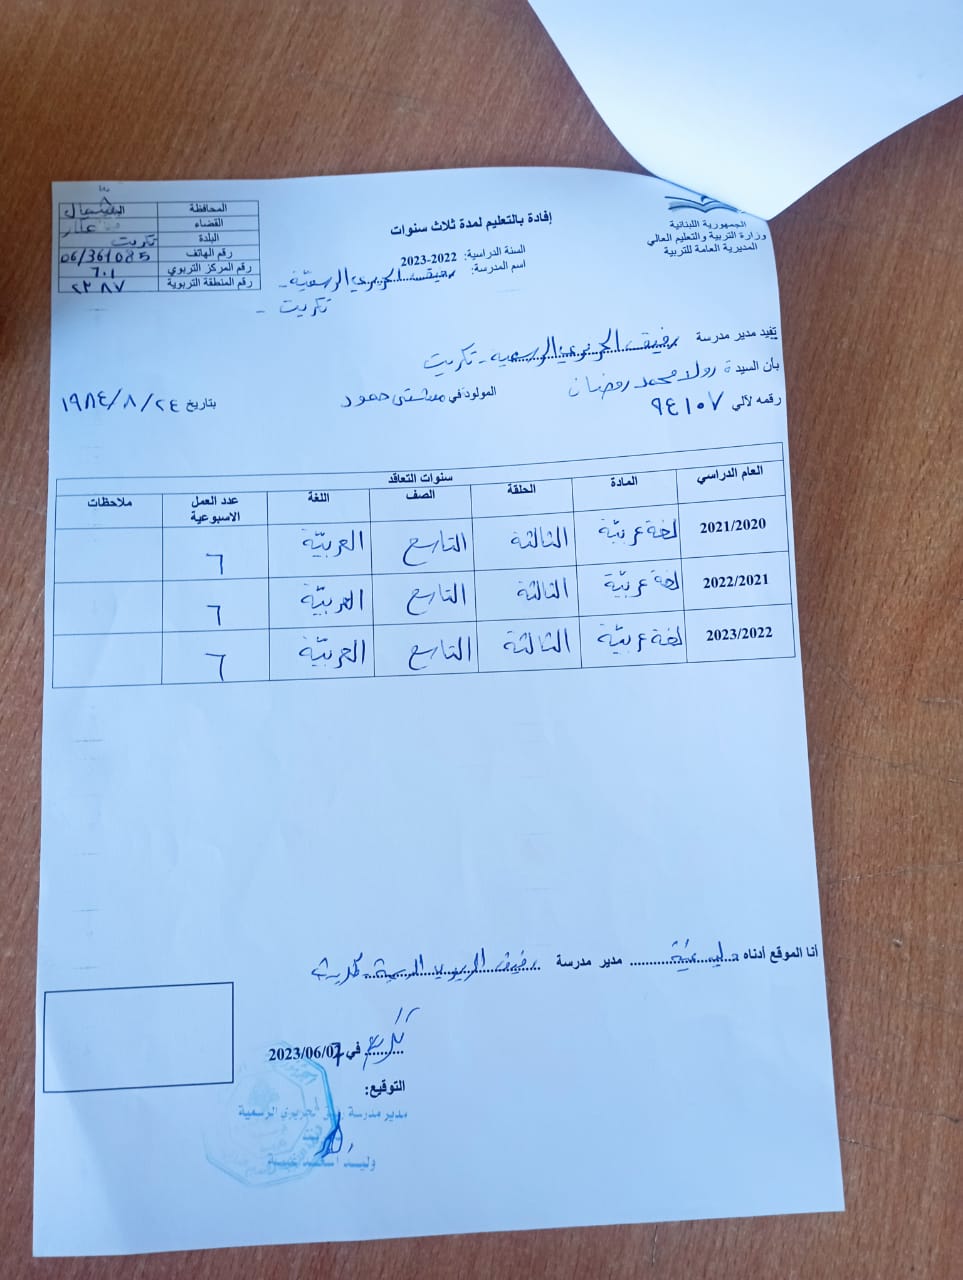 الجمهورية اللبنانية
وزارة التربية والتعليم العالي
المديرية العامة للتربية
إفادة بالتعليم لمدة ثلاث سنوات
السنة الدراسية: 2022-2023
اسم المدرسة: رفيق الحريري الرسمية -
تكريت -
المحافظة
القضاء عكار
البلدة تكريت
رقم الهاتف 06/361085
رقم المركز التربوي ٦٠١
رقم المنطقة التربوية ٢٣٨٧
يفيد مدير مدرسة رفيق الحريري الرسمية - تكريت
بأن السيدة رولا محمد رمضان المولود في مشتى حمود بتاريخ ٢٤/٨/١٩٨٤
رقمه الآلي ٩٤١٠٧
سنوات التعاقد
العام الدراسي المادة الحلقة الصف اللغة عدد العمل الاسبوعية ملاحظات
2021/2020 لغة عربيّة الثالثة التاسع العربيّة ٦
2022/2021 لغة عربيّة الثالثة التاسع العربيّة ٦
2023/2022 لغة عربيّة الثالثة التاسع العربيّة ٦
أنا الموقع أدناه وليد مدير مدرسة رفيق الحريري الرسمية تكريت
تكريت في 2023/06/07
التوقيع:
مدير مدرسة رفيق الحريري الرسمية
وليد أسعد